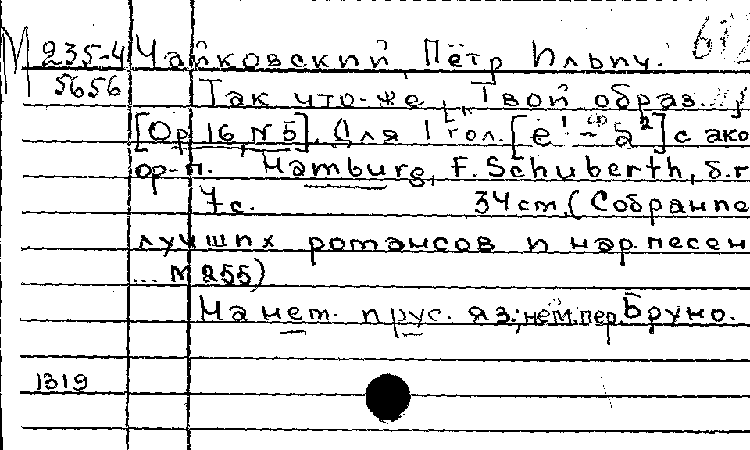 М 235-4 Чайковский, Пётр Ильич.
5656 Так что-же, Твой образ.
[Op. 16, N 5]. Для 1 гол. [e¹ - a²] с ако
ор-п. Hamburg, F. Schuberth, б.г
7 с. 34 cm. (Собрание
лучших романсов и нар. песен
... N 255)
На нем. и рус. яз.; нем. пер. Бруно.
1319